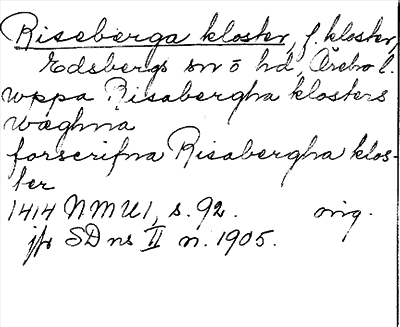 Riseberga kloster, f. kloster,
Edsbergs sn o hd, Örebro l.
wppa Risabergha klosters
wæghna
forscrifna Risabergha klos-
ter
1414 NMU 1, s. 92. orig.
jfr SD ns II n. 1905.